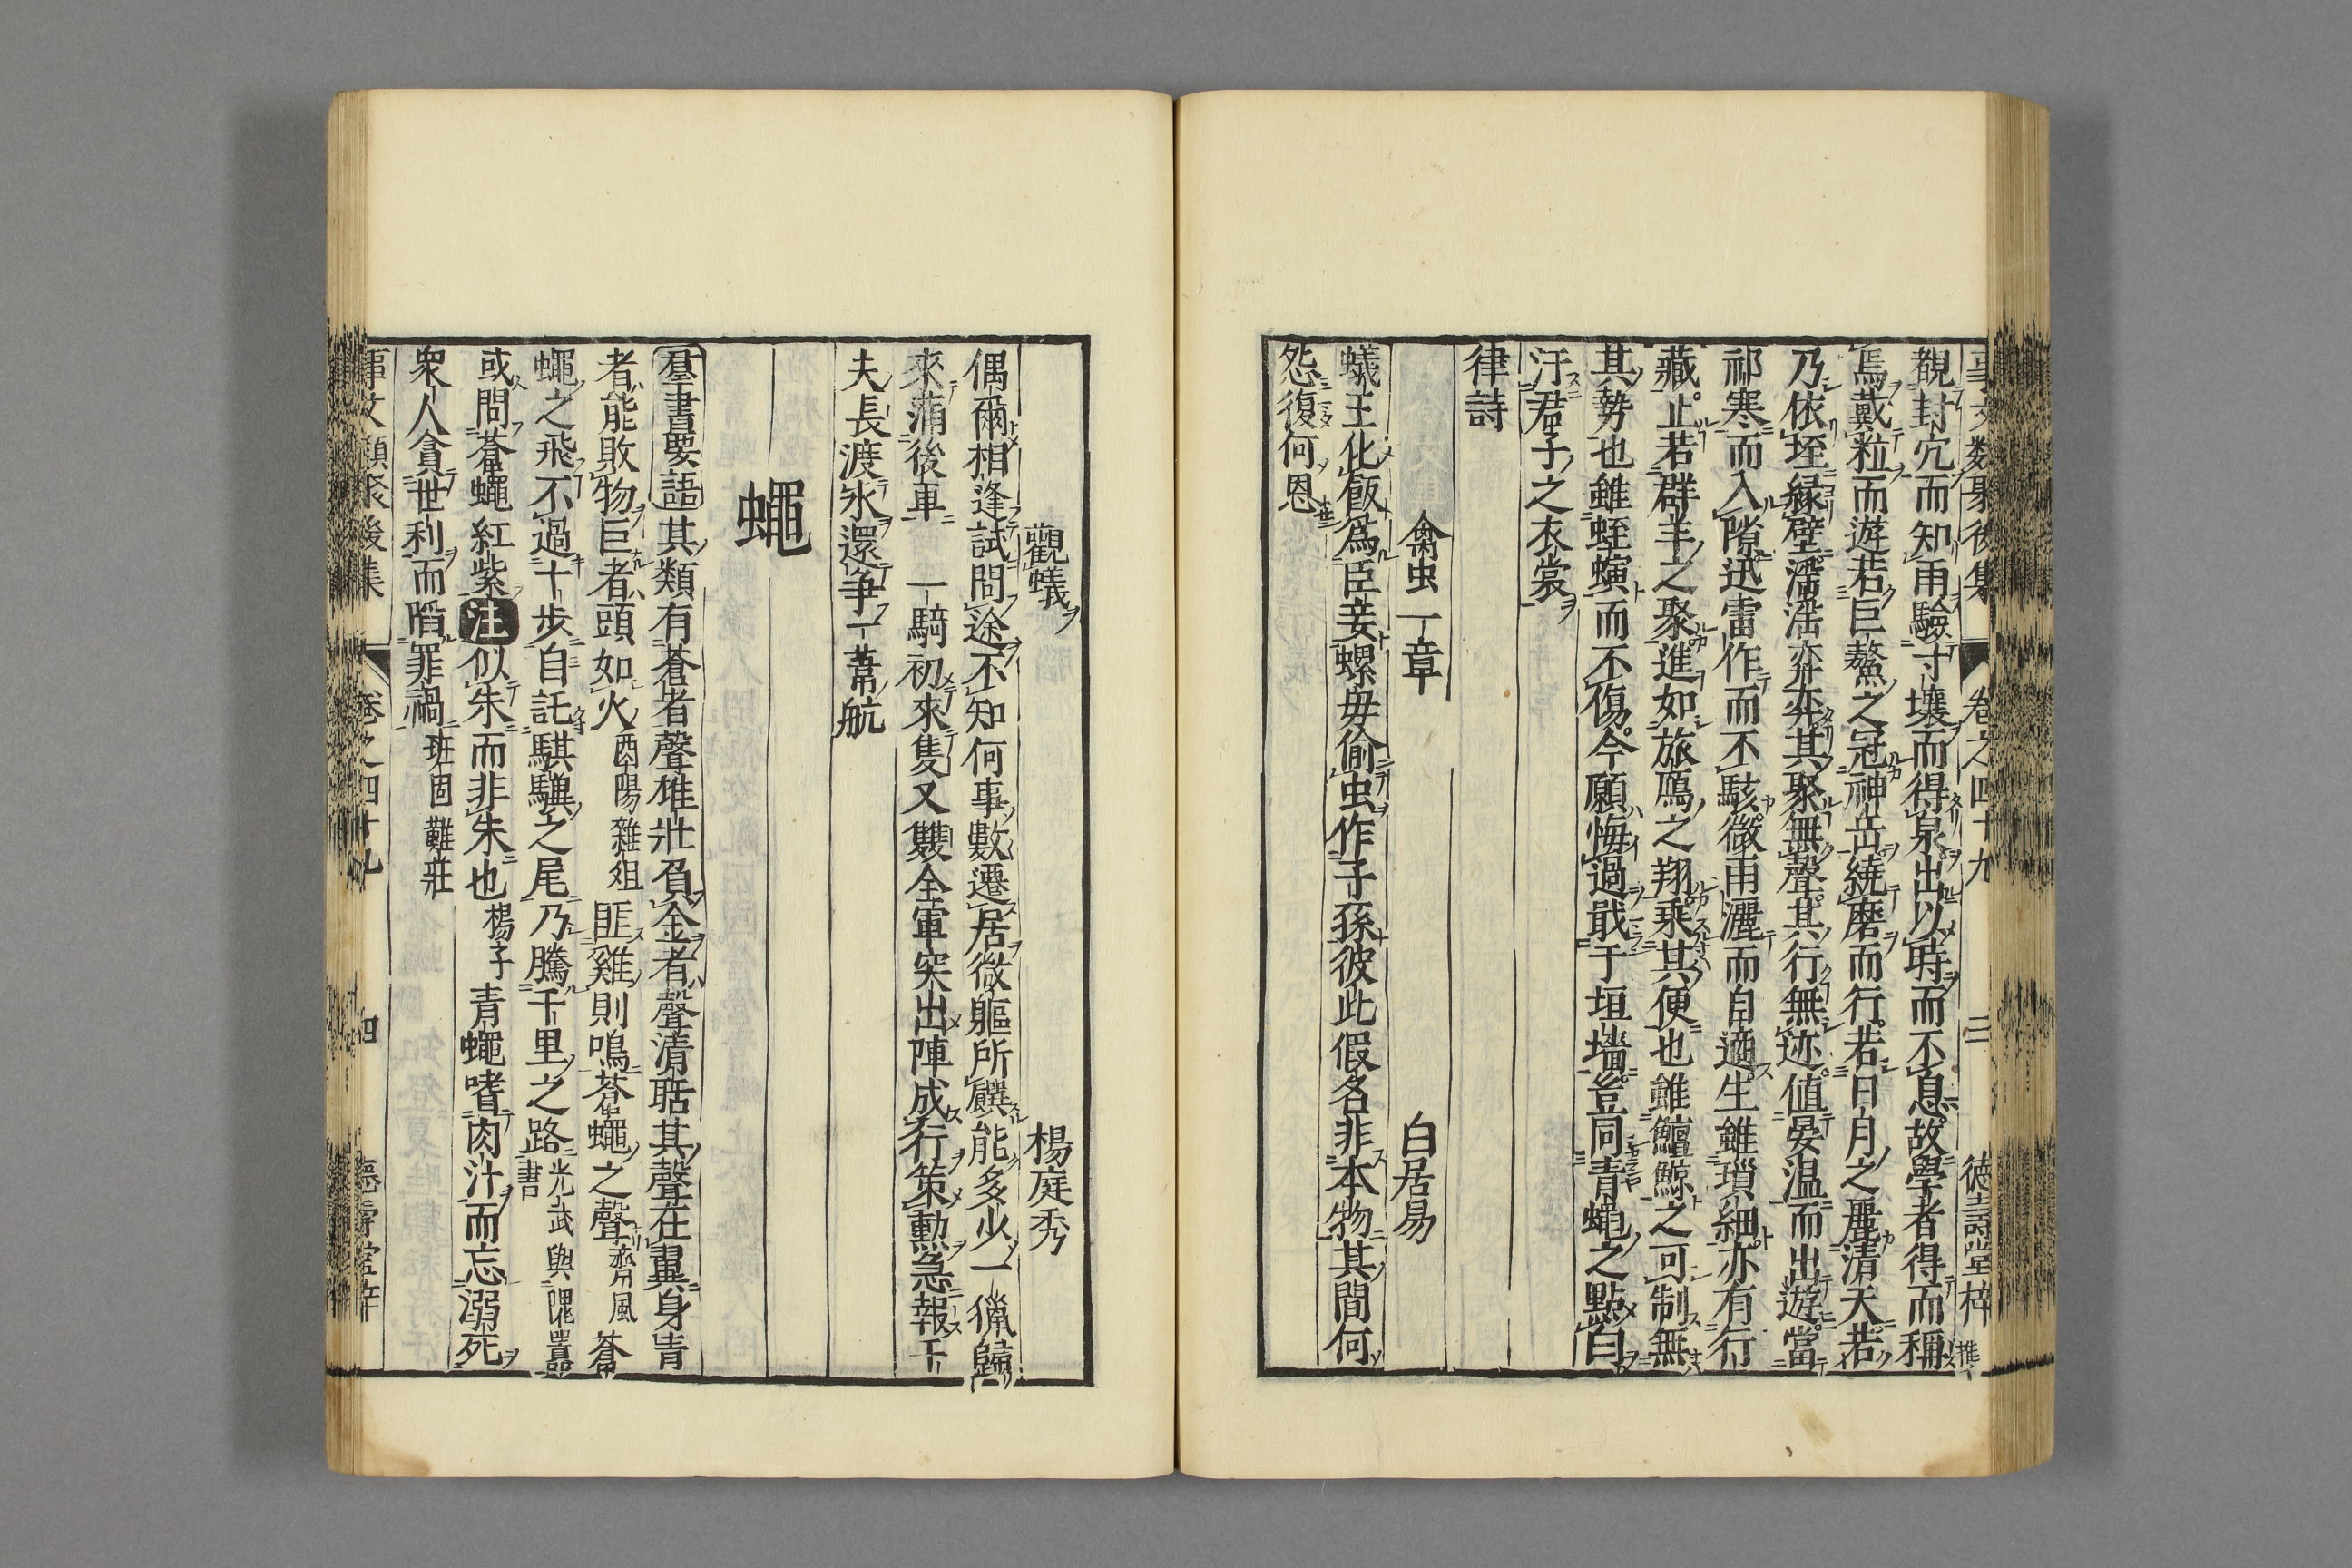 事文類聚後集 卷之四十九 三 德壽堂梓
覩封穴而知雨驗寸壤而得泉出以時而不息故學者得而稱
焉戴粒而遊若巨鰲之冠神岳繞磨而行若日月之麗清天若
乃依垤緣壁滔滔弈弈其聚無聲其行無迹値晏温而出遊當
祁寒而入隙迅雷作而不駭微雨灑而自適生雖瑣細亦有行
藏止若群羊之聚進如旅鴈之翔乘其便也雖鱣鯨之可制無
其勢也雖蛭螾而不傷今願悔過戢于垣墻豈同青蠅之點白
汙君子之衣裳
律詩
禽虫一章 白居易
蟻王化飯爲臣妾螺毋偷虫作子孫彼此假名非本物其間何
怨復何恩
觀蟻 楊庭秀
偶爾相逢試問途不知何事數遷居微軀所饌能多少一獵歸
來滿後車 一騎初來隻又雙全軍突出陣成行策勳急報千
夫長渡水還爭一葦航
蠅
羣書要語其類有蒼者聲雄壯負金者聲清聒其聲在翼身青
者能敗物巨者頭如火酉陽雜俎匪雞則鳴蒼蠅之聲齊風蒼
蠅之飛不過十步自託騏驥之尾乃騰千里之路光武與隗囂書
或問蒼蠅紅紫注似朱而非朱也楊子青蠅嗜肉汁而忘溺死
衆人貪世利而陷罪禍班固難莊
事文類聚後集 卷之四十九 四 德壽堂梓